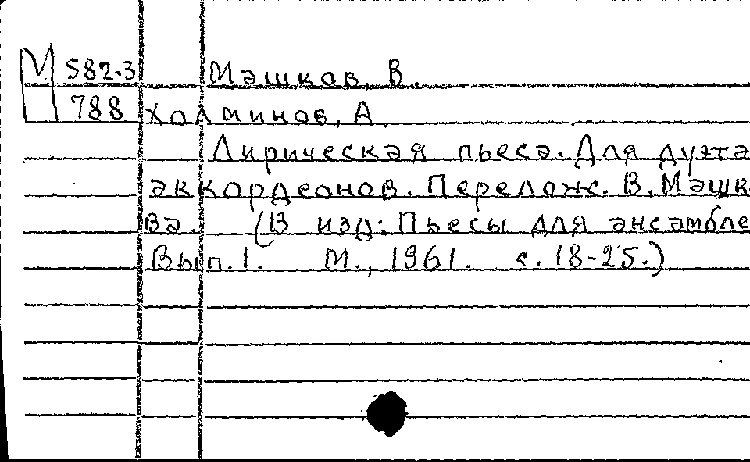 М 582.3 Машков, В.
788 Холминов, А.
Лирическая пьеса. Для дуэта
аккордеонов. Перелож. В. Машк
ва. (В изд: Пьесы для ансамбле
Вып. 1. М., 1961. с. 18-25.)